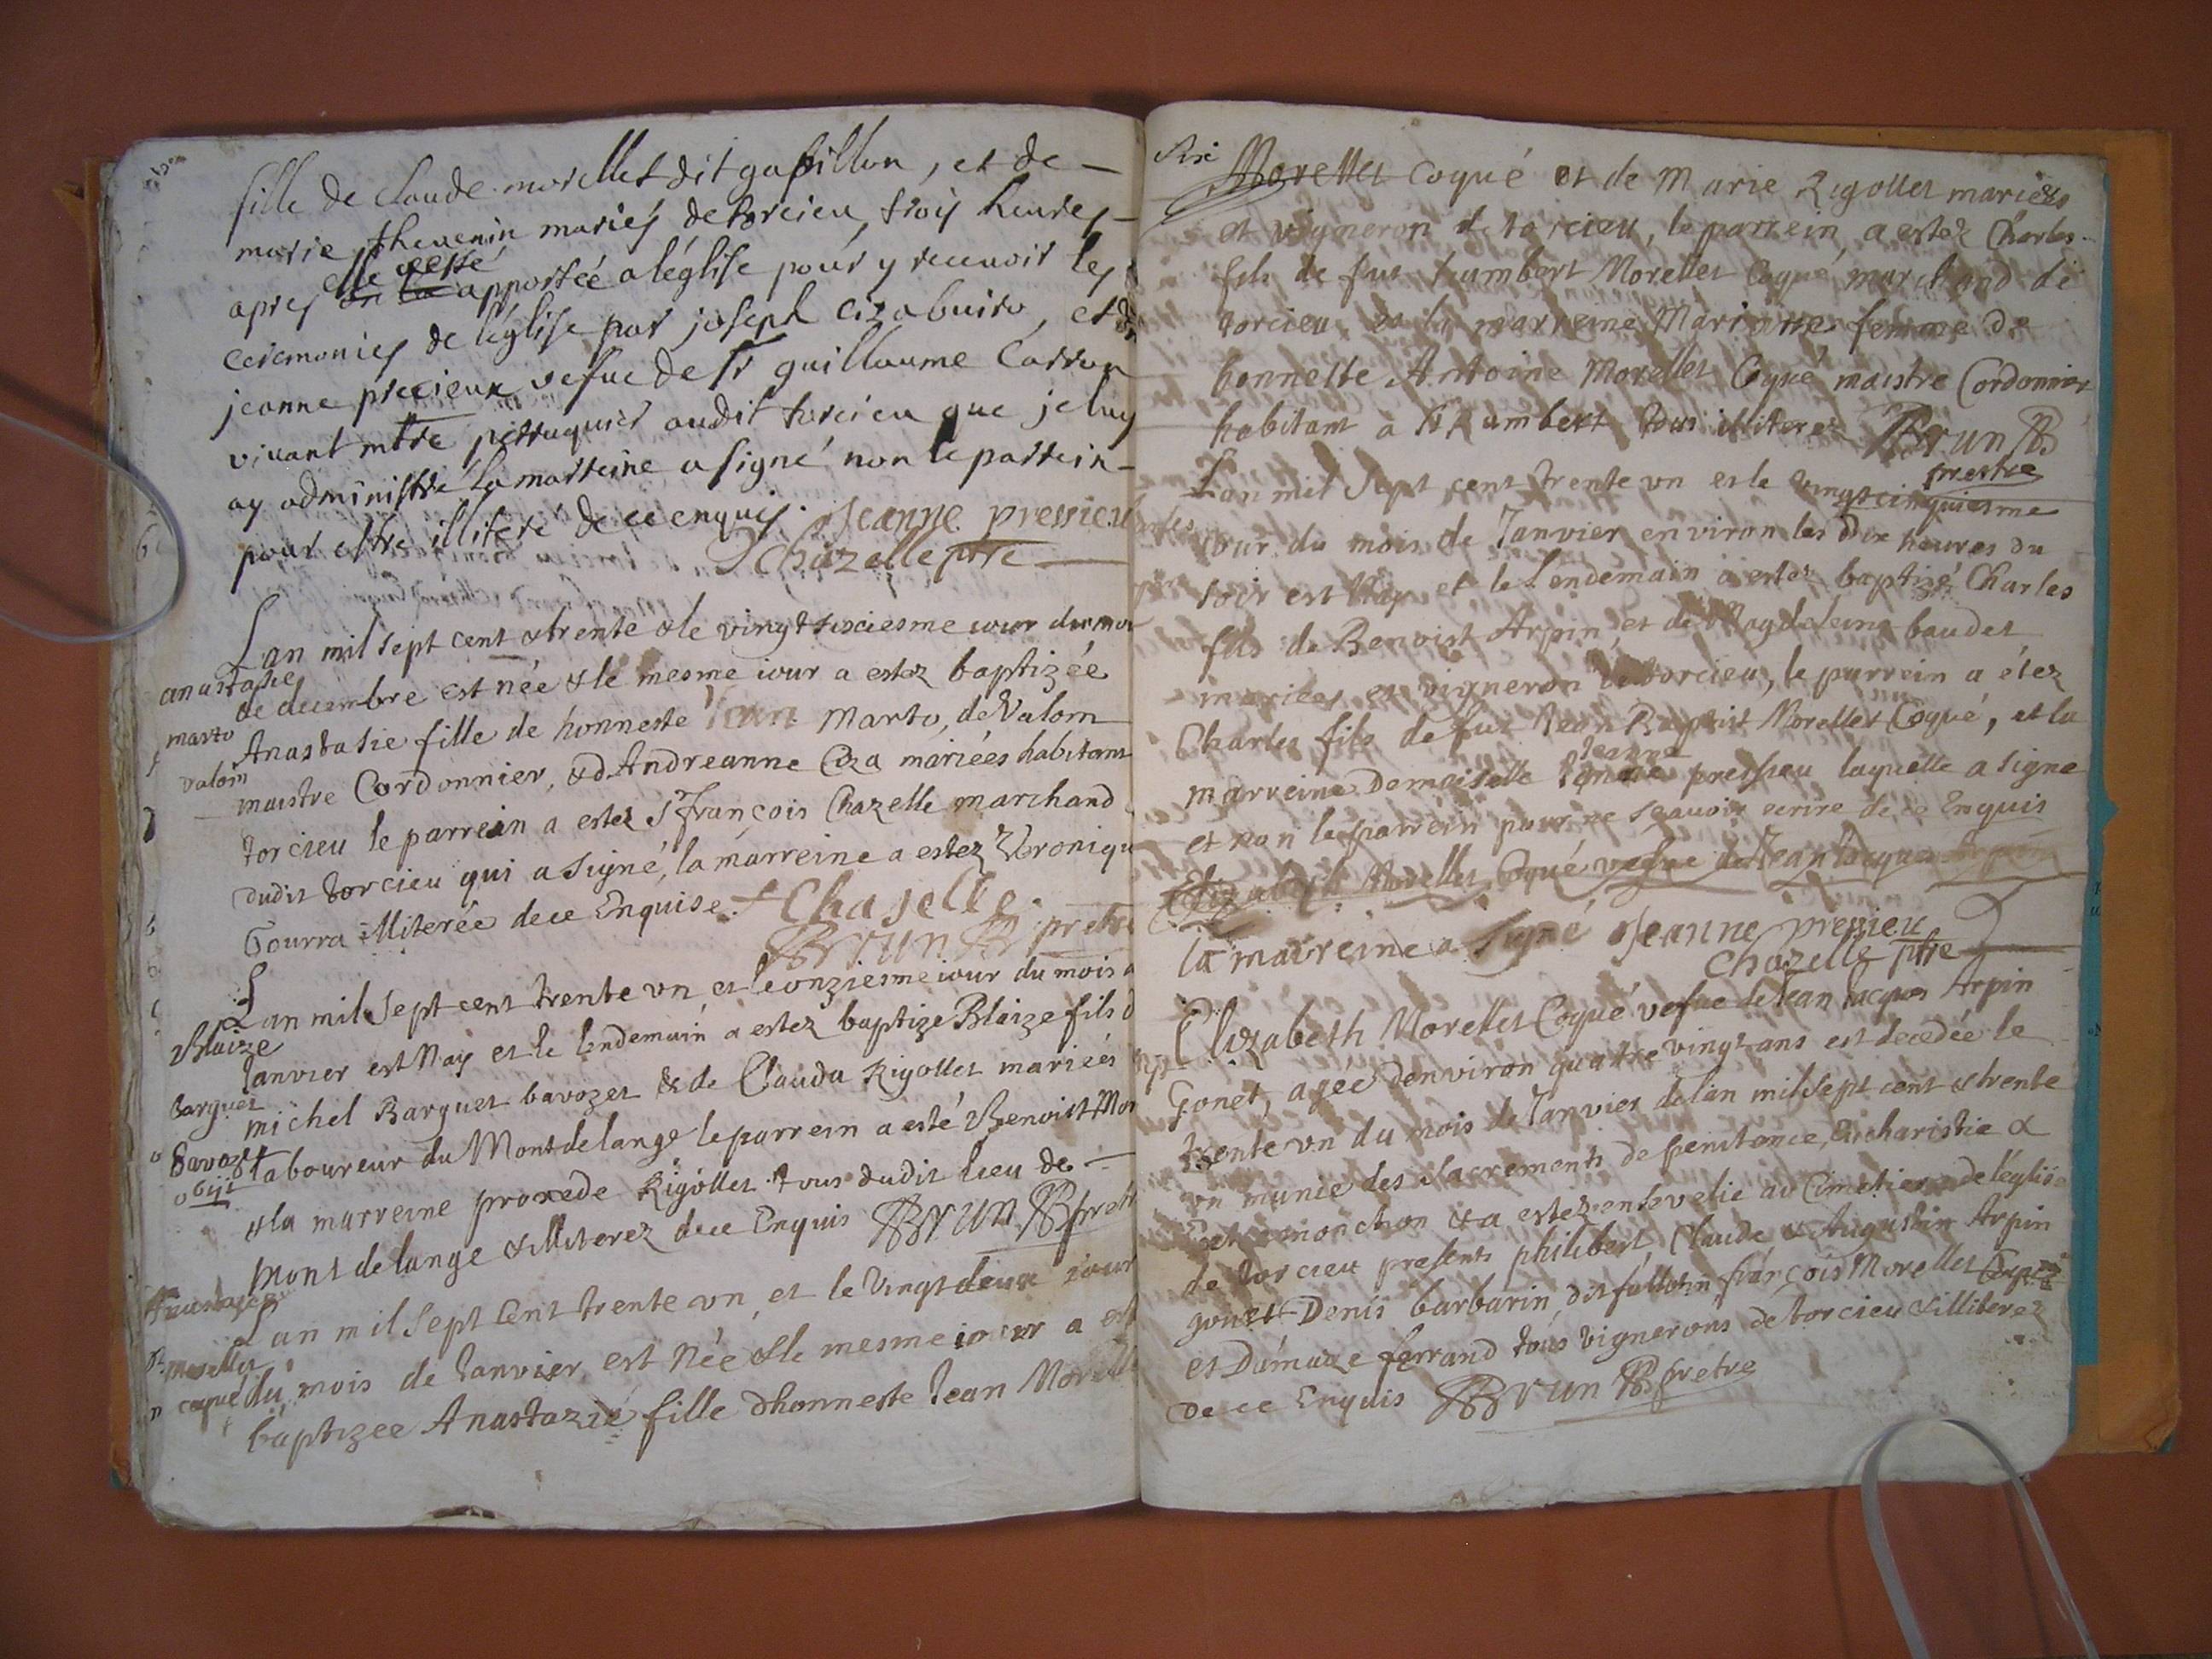 fille de claude morellet dit gapillon, et de —
marie thevenin mariés de torcieu, trois heures —
apres elle a esté on la apportée a léglise pour y recevoir les
ceremonies de léglise par joseph cizabuiro, et de
jeanne precieux vefue de sr guillaume Carron
vivant mtre perruquier audit torcieu que je luy
ay administré la marreine a signé non le parrein —
pour estre illiteré de ce enquis. Jeanne pressieu
Chazelle ptre
Lan mil sept cent & trente & le vingt sixiesme iour du moi
anastasie
de decembre est née & le mesme iour a estez baptizée
marto
Anastasie fille de honneste Jean Marto, de Valom
valom
maistre Cordonnier, & d'Andreanne Ciza mariées habitant
torcieu le parrein a estez Sr François Chazelle marchand
dudit torcieu qui a signé, la marreine a estez Veroniqu
Gourra illiterée de ce Enquise. + Chaselle
BrunB pretre
Lan mil sept cent trente un et le onziesme iour du mois d
Blaize
Janvier est Nay et le lendemain a estez baptizé Blaize fils d
Barguet
michel Barguet bavozet & de Clauda Rigollet mariées
Bavozet
laboureur du Montdelange le parrein a esté Benoist Mor
obiit
& la marreine proxede Rigollet tous dudit lieu de —
Mont delange & illiterez de ce Enquis BrunB pretr
Anastasie
Lan mil sept Cent trente un, et le Vingt deux iour
morellet
coqué du mois de Janvier est Née & le mesme iour a est
baptizée Anastazie fille dhonneste Jean Morelle
Morellet Coqué et de Marie Rigollet mariées
et vigneron de torcieu, le parrein a estez Charles
fils de fut humbert Morellet Coqué marchand de
torcieu et la marreine Marianne femme de
honneste Antoine Morellet Coqué maistre Cordonnier
habitant à St Rambert tous illiterez BrunB
prestre
Lan mil Sept cent trente un et le vingtcinquiesme
iour du mois de Janvier environ les Dix heures du
soir est Nay et le Lendemain a estez baptizé Charles
fils de Benoist Arpin et de Magdeleine baudet
mariées et vigneron de torcieu, le parrein a étez
Charles fils de fut Jean Baptist Morellet Coqué, et la
marreine Demoiselle Jeanne pressieu laquelle a signe
et non le parrein pour ne sçavoir ecrire de ce Enquis
Elizabeth Morellet Coqué vefue de Jean Jacques Arpin
la marreine a Signé Jeanne pressieu
Chazelle ptre
Elizabeth Morellet Coqué vefue de Jean Jacques Arpin
Gonet, agée denviron quatre vingt ans est decedée le
trente un du mois de Janvier de lan mil sept cent & trente
un munie des sacrements de penitance, Eucharistie &
extremonction & a estez ensevelie au Cimetiere de léglise
de torcieu presents philibert, Claude & Augustin Arpin
gonet Denis barbarin dit follotin françois Morellet
et Damaze ferrand tous vignerons de torcieu & illiterez
de ce Enquis BrunB prétre